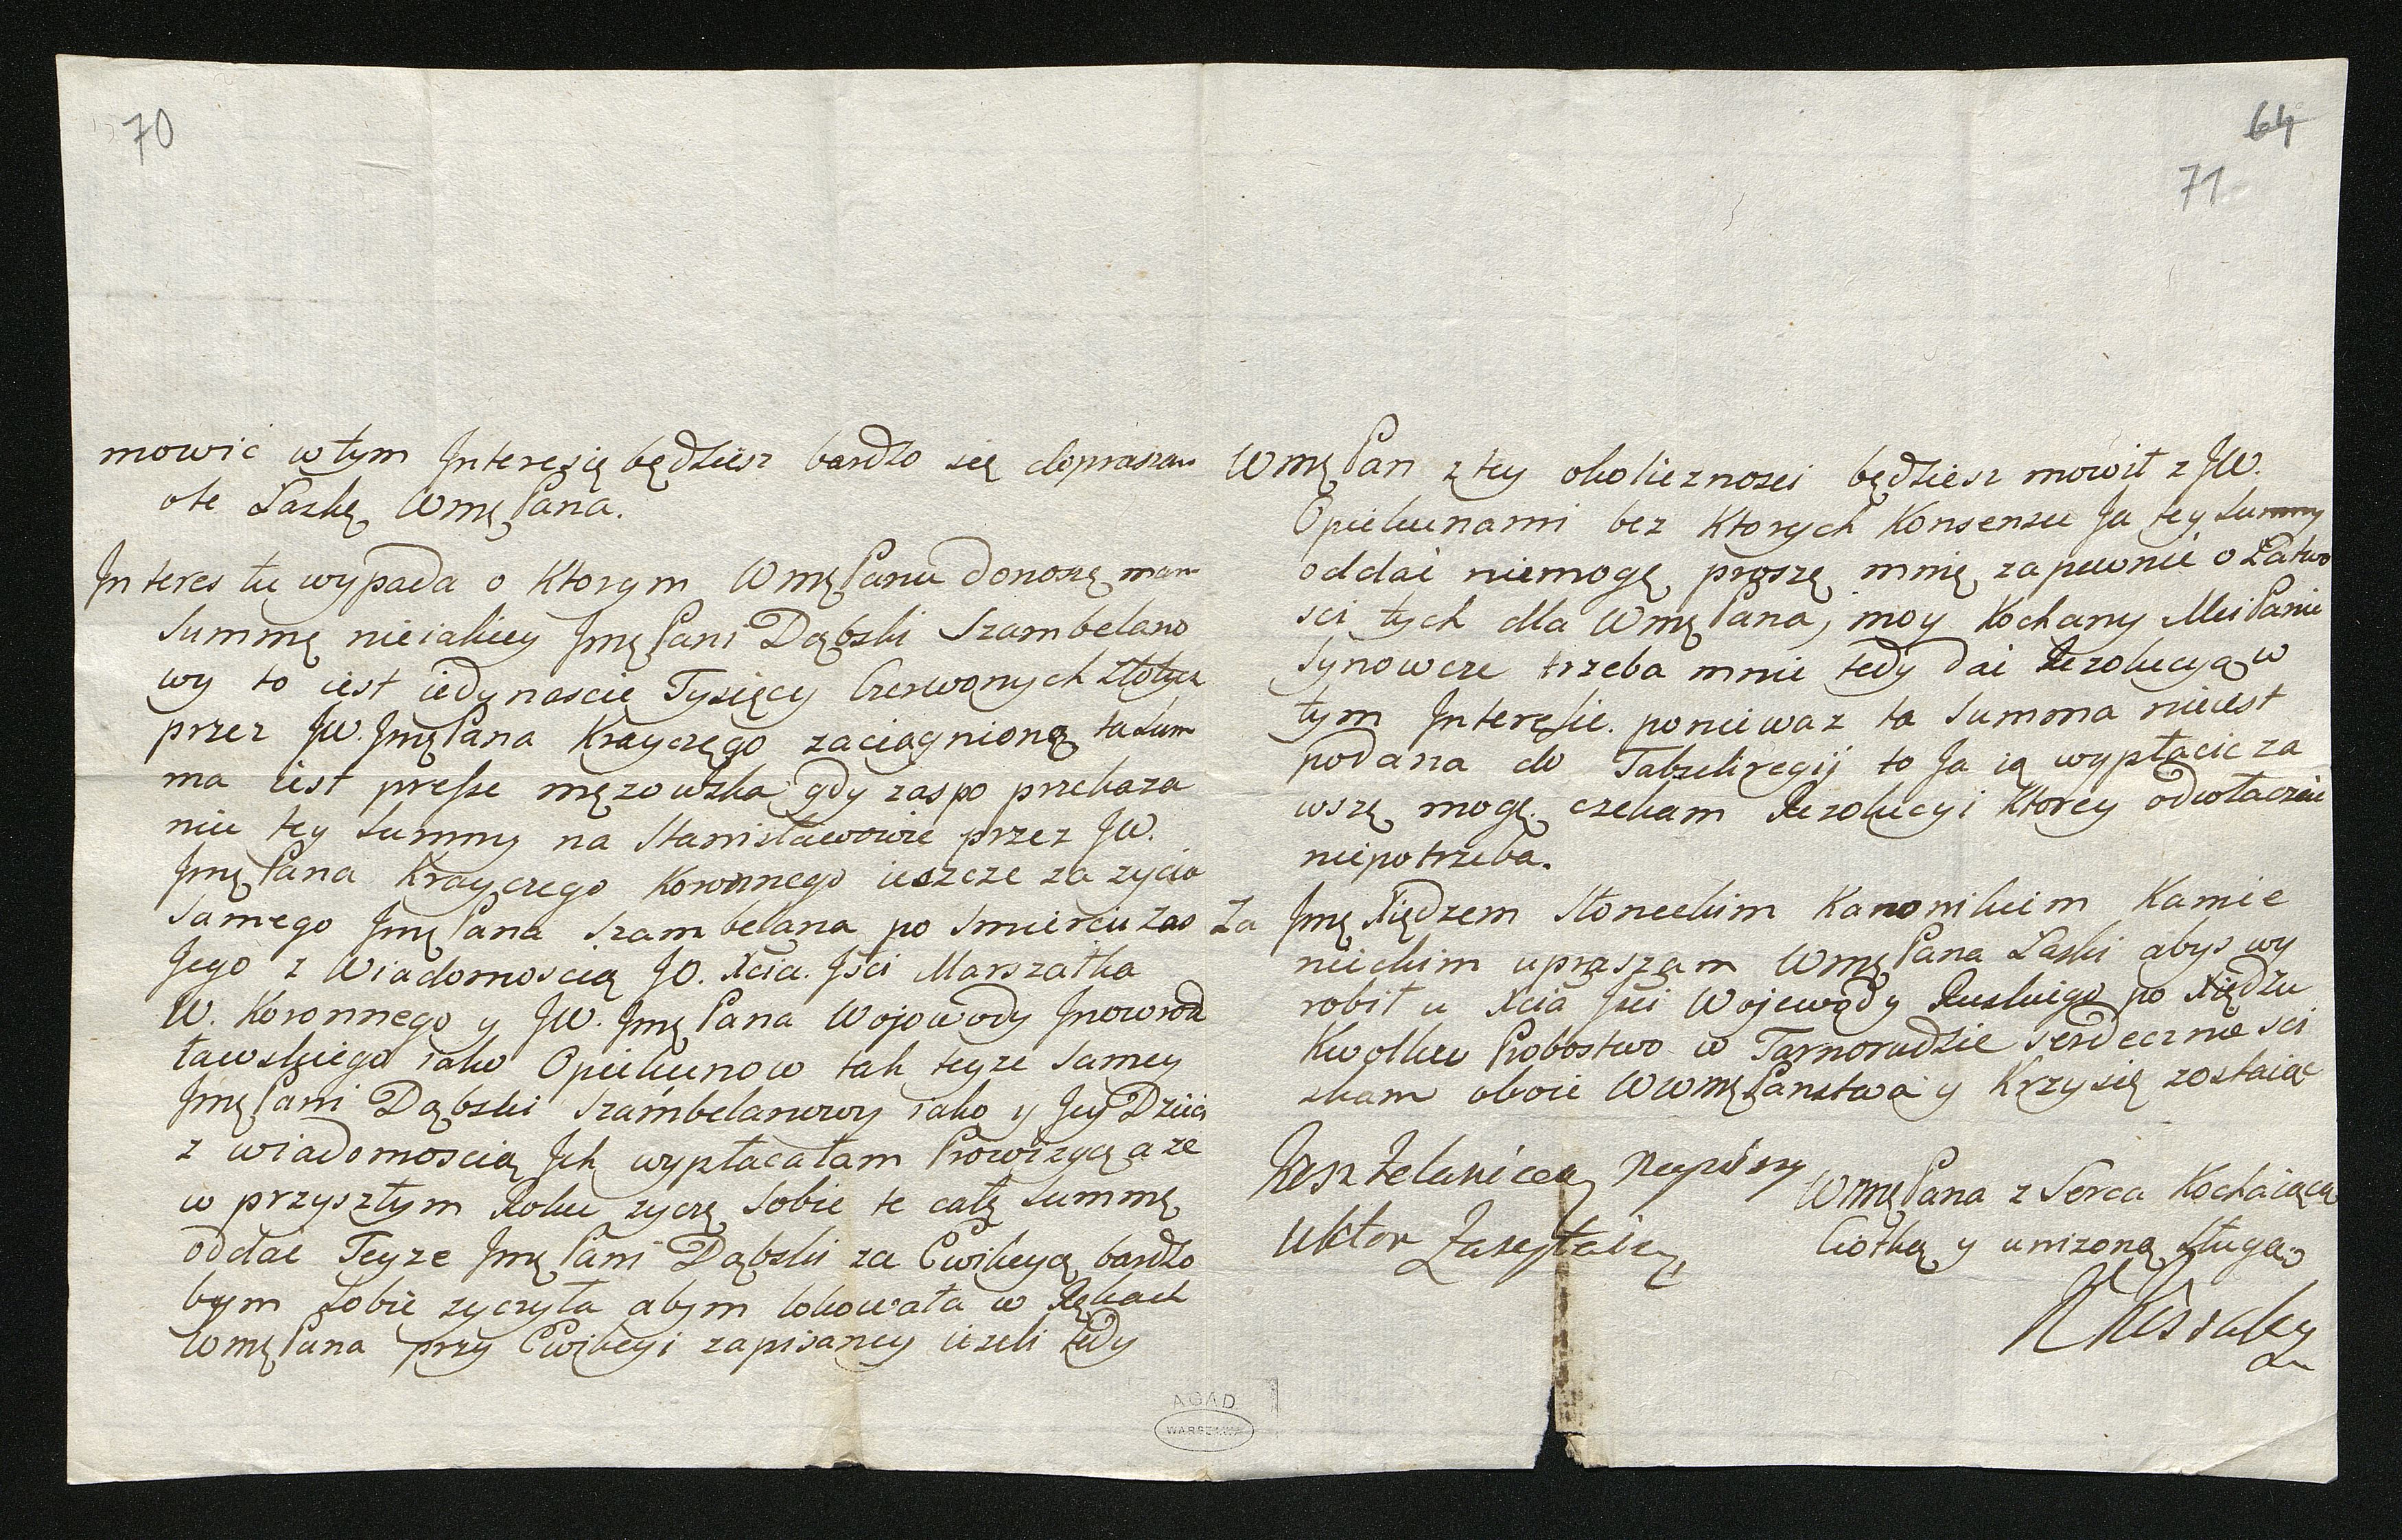 70
mowić w tym Interesię będziesz bardzo się dopraszam
o te Łaskę WmęPana.
Interes tu wypada o ktorym WmęPanu donoszę mam
Summę nieiakiey JmęPani Dąbski Szambelano
wy to iest iedynascie Tysięcy Czerwonych złotych
przez JW. JmęPana Krayczego zaciągnioną ta Sum
ma iest preſse męzowska gdy zas po przekaza
niu tey Summy na Stanisławowie przez JW.
JmęPana Krayczego Koronnego ieszcze za zycia
Samego JmęPana Szambelana po Smierci zas
Jego z Wiadomoscią JO. Xcia Jści Marszałka
W. Koronnego y JW. JmęPana Wojowody Jnowrod
ławskiego iako Opiekunow tak teyze Samey
JmęPani Dąbski Szambelanowy iako y Jey Dzieci
z wiadomoscią Jch wypłacałam Prowizyą a ze
w przyszłym Roku zyczę Sobie te całę Summę
oddać Teyze JmęPani Dąbski za Ewikcyą bardzo
bym Sobie zyczyła abym lokowała w Rękach
WmęPana przy Ewikcyi zapisaney iezeli tedy
64
71
WmęPan z tey okolicznosci będziesz mowił z JW.
Opiekunami bez ktorych Konsensu Ja tey Summy
oddać niemogę proszę mnię zapewnić o Łatwo
sci tych dla WmęPana, moy kochany Mci Panie
Synowcze trzeba mnie tedy dać Rezolucyą w
tym Intereſie. poniewaz ta Summa nieiest
podana do Tabeliregij to Ja ią wypłacić za
wszę mogę. czekam Rezolucyi ktorey odwłaczać
niepotrzeba.
Za Jmę Xiędzem Słoneckim Kanonikiem Kamie
nieckim upraszam WmęPana Łaski abys wy
robił u Xcia Jści Wojewody Ruskiego po Xiędzu
Probostwo w Tarnorudzie serdecznie sci
skam oboie WWmęPanstwa y Krzysię zostaiąc
WmęPana z Serca Kochaiącą
Ciotką y unizoną Sługą
AGAD
WARSZAWA